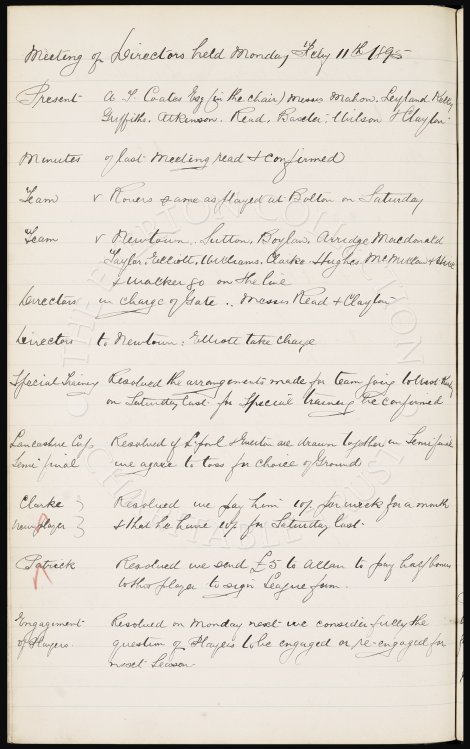 Meeting of Directors held Monday Feby 11th 1895
Present A. T. Coates Esq (in the chair) Messrs Mahon, Leyland Kelly
Griffiths. Atkinson. Read, Baxter, Wilson & Clayton
Minutes of last Meeting read & confirmed
Team v Rovers same as played at Bolton on Saturday
Team v Newtown. Sutton, Boylan, Arridge Macdonald
Taylor, Elliott, Williams, Clarke. Hughes. McMillan &
& Walker go on the line
Directors in charge of Gate .. Messrs Read & Clayton
Directors to Newtown: Elliott take charge
Special Training Resolved the arrangements made for team going to
on Saturday last for special training be confirmed
Lancashire Cup Resolved if L'pool & Everton are drawn together in Semi final
Semi final we agree to toss for choice of Ground
Clarke } Resolved we pay him 10/ per week for a month
new player } & that he have 10/ for Saturday last.
Patrick Resolved we send £5 to Allan to pay half bonus
to this player to sign League form.
Engagement Resolved on Monday next we consider fully the
of Players. question of Players to be engaged or re-engaged for
next Season